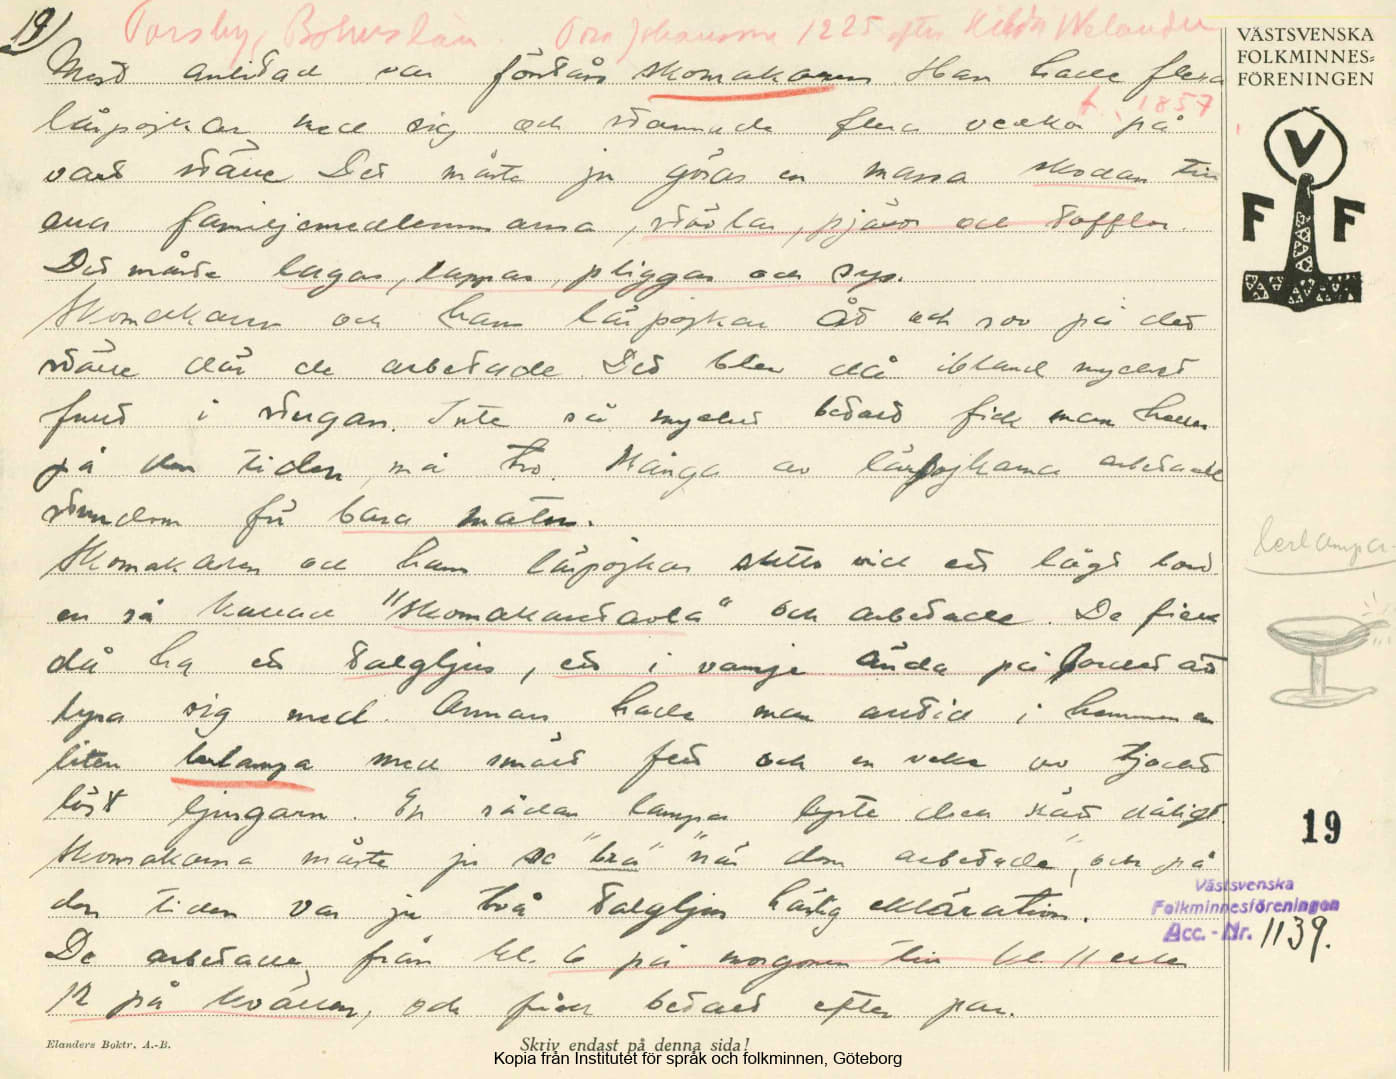 19)
Torsby, Bohuslän. Tora Johansson 1925 efter Hilda Welander
f. 1857
VÄSTSVENSKA
FOLKMINNES=
FÖRENINGEN
V
F F
Mest anlitad var förstås skomakaren. Han hade flera
lärpojkar med sig och stannade flera veckor på
vart ställe. Det måste ju göras en massa skodon till
alla familjemedlemmarna, stövlar, pjäxor och tofflor.
Det måste lagas, lappas, pliggas och sys.
Skomakaren och hans lärpojkar åt och sov på det
ställe där de arbetade. Det blev då ibland mycket
fullt i stugan. Inte så mycket betalt fick man heller
på den tiden, må tro. Många av lärpojkarna arbetade
stundom för bara maten.
Skomakaren och hans lärpojkar sutto vid ett lågt bord
en så kallad "skomakaretavla" och arbetade. De fick
då ha ett talgljus, ett i varje ända på bordet att
lysa sig med. Annars hade man alltid i hemmen en
liten lerlampa med smält fett och en veke av tjockt
löst ljusgarn. En sådan lampa lyste dock rätt dåligt.
Skomakarna måste ju se "bra" när dom arbetade, och på
den tiden var ju två talgljus härlig ekläration.
De arbetade från kl. 6 på morgonen till kl. 11 eller
12 på kvällen, och fick betalt efter par.
lerlampa.
19
Västsvenska
Folkminnesföreningen
Acc. - Nr. 1139.
Elanders Boktr. A.-B.
Skriv endast på denna sida!
Kopia från Institutet för språk och folkminnen, Göteborg